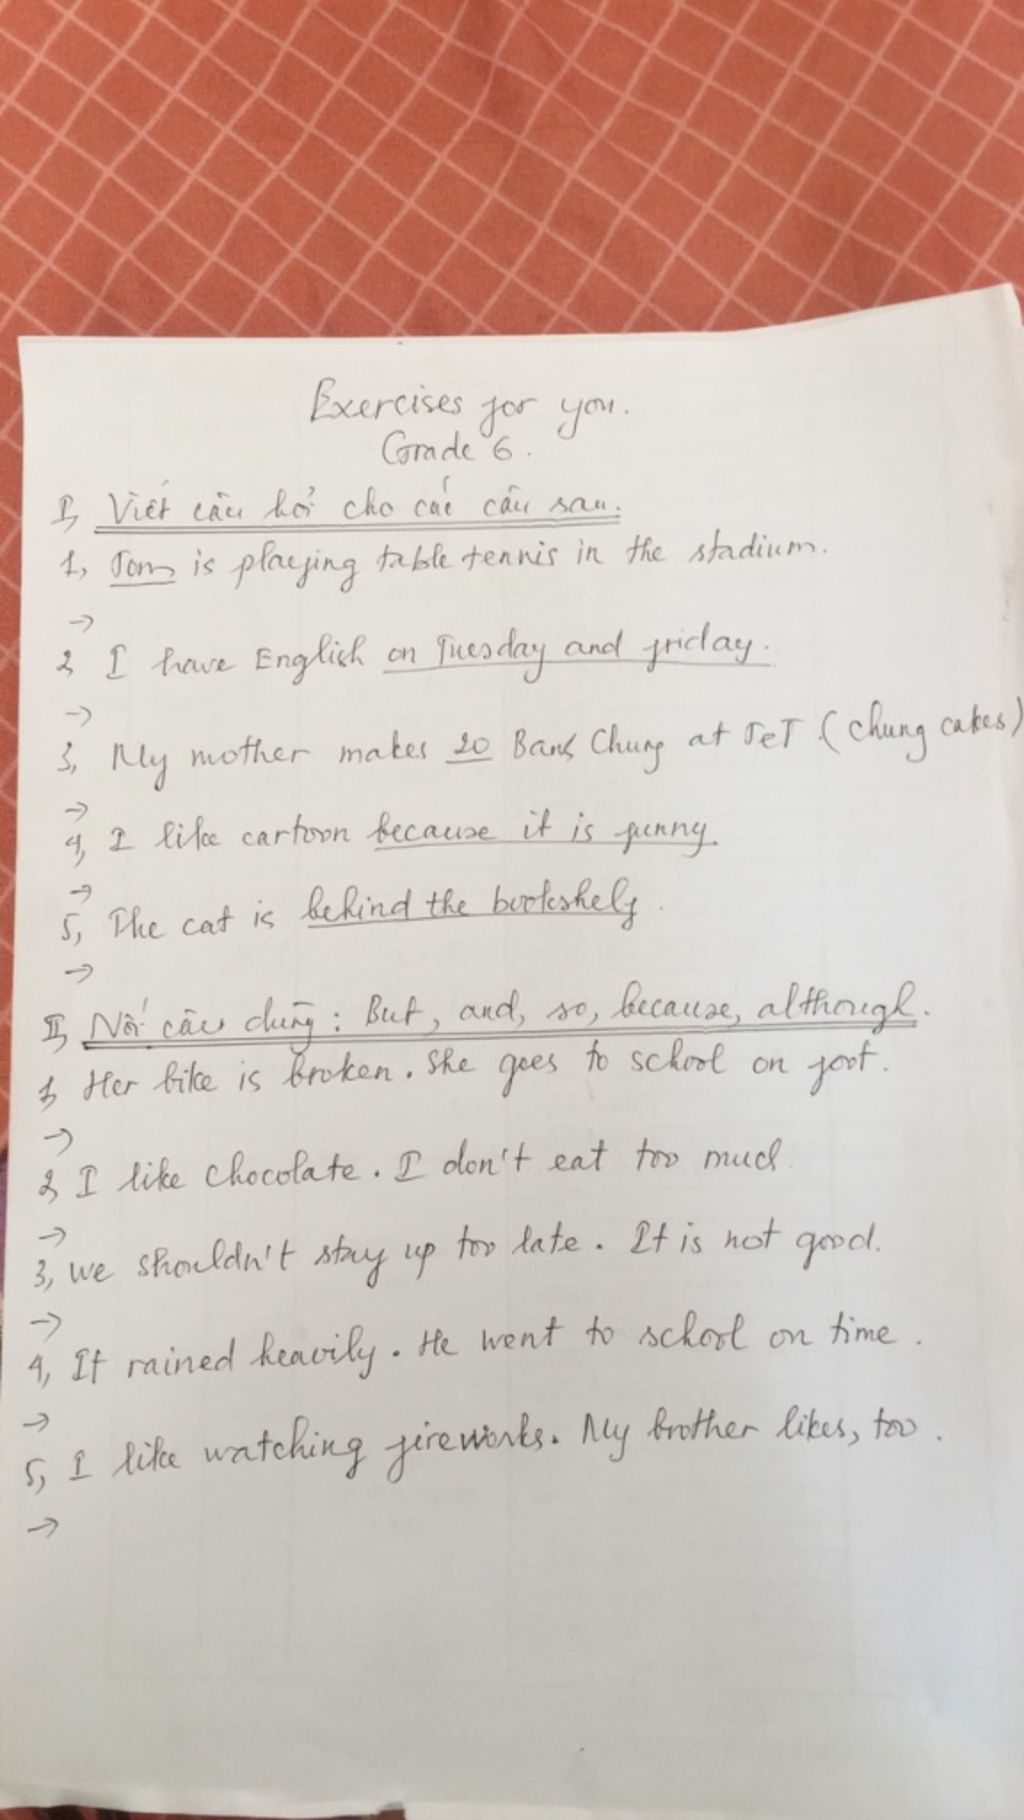 Exercises for you.
Grade 6.
I, Viết câu hỏi cho các câu sau.
1, Tom is playing table tennis in the stadium.
→
2, I have English on Tuesday and friday.
→
3, My mother makes 20 Banh Chung at TeT (chung cakes)
→
4, I like cartoon because it is funny.
→
5, The cat is behind the bookshelf.
→
II, Nối câu dùng: But, and, so, because, although.
1, Her bike is broken. She goes to school on foot.
→
2, I like chocolate. I don't eat too much
→
3, we shouldn't stay up too late. It is not good.
→
4, It rained heavily. He went to school on time.
→
5, I like watching fireworks. My brother likes, too.
→